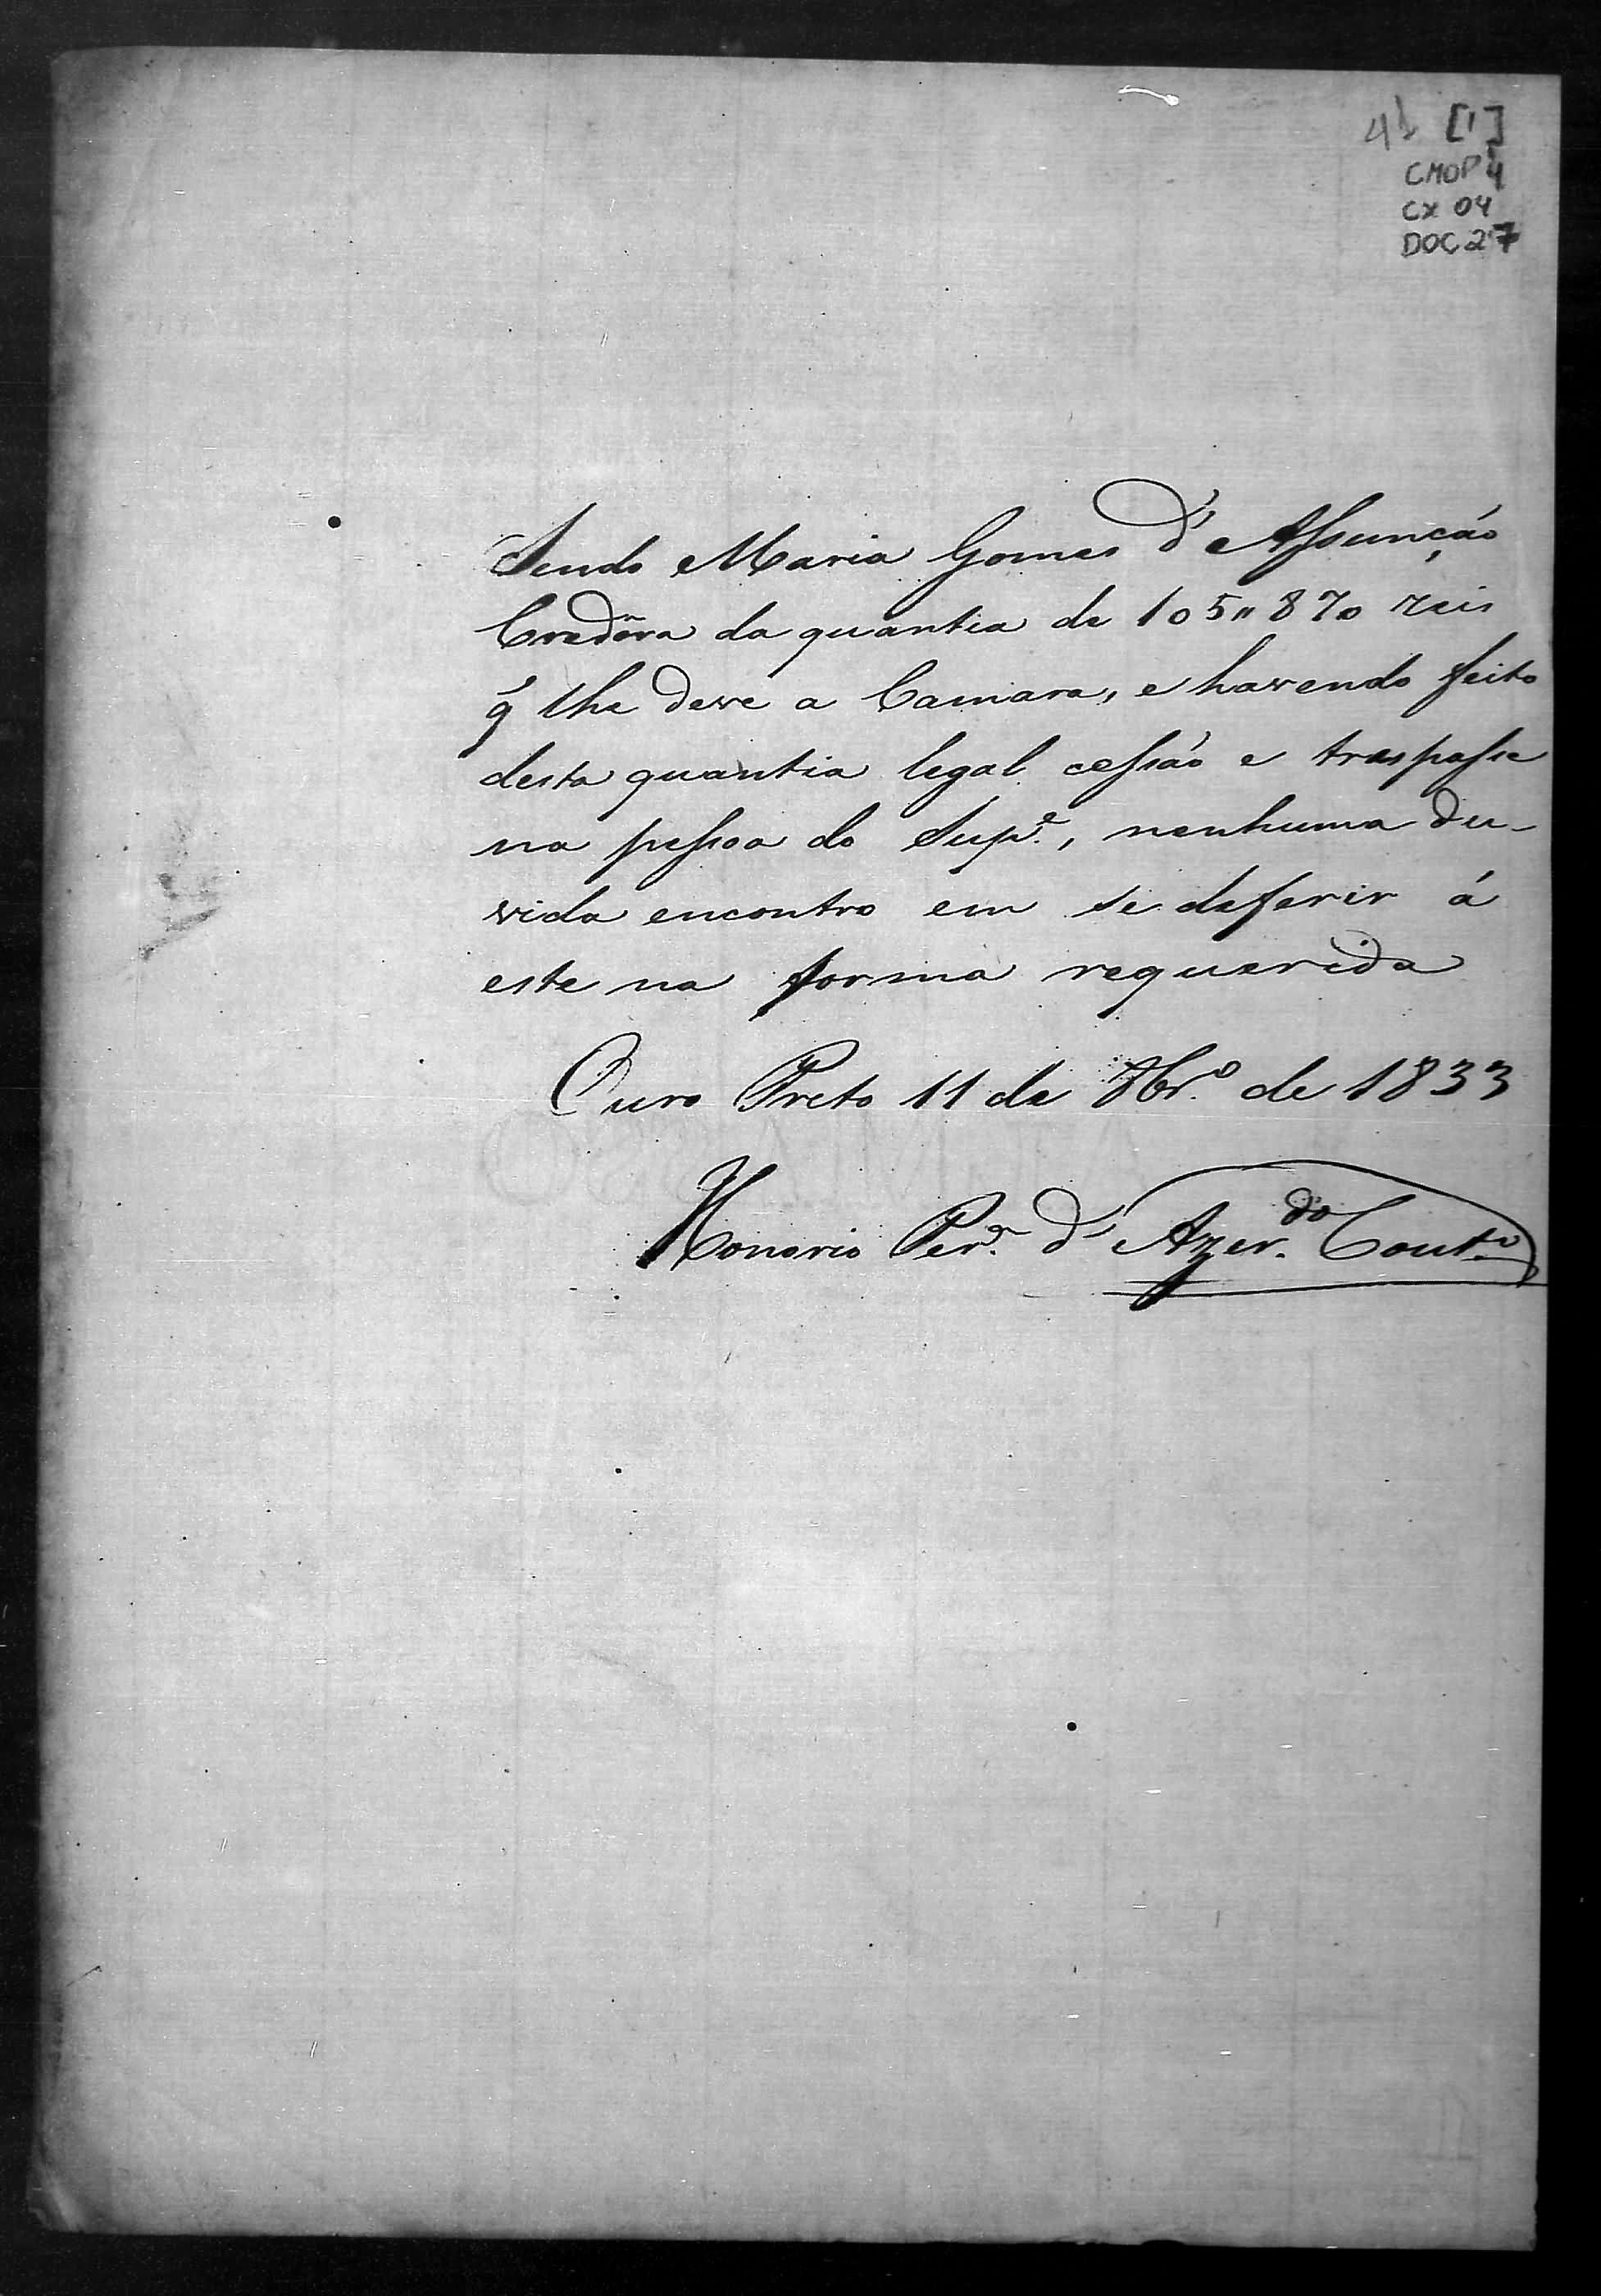 41 [1]
CMOP 4
CX 04
DOC 27
Sendo Maria Gomes d'Assunção
Credôra da quantia de 105"870 reis
q̃ lhe deve a Camara, e havendo feito
desta quantia legal cessão e traspasse
na pessoa do Sup.e, nenhuma du-
vida encontro em se deferir á
este na forma requerida
Ouro Preto 11 de 7br.o de 1833
Honorio Per.a d'Azer.do Cout.o